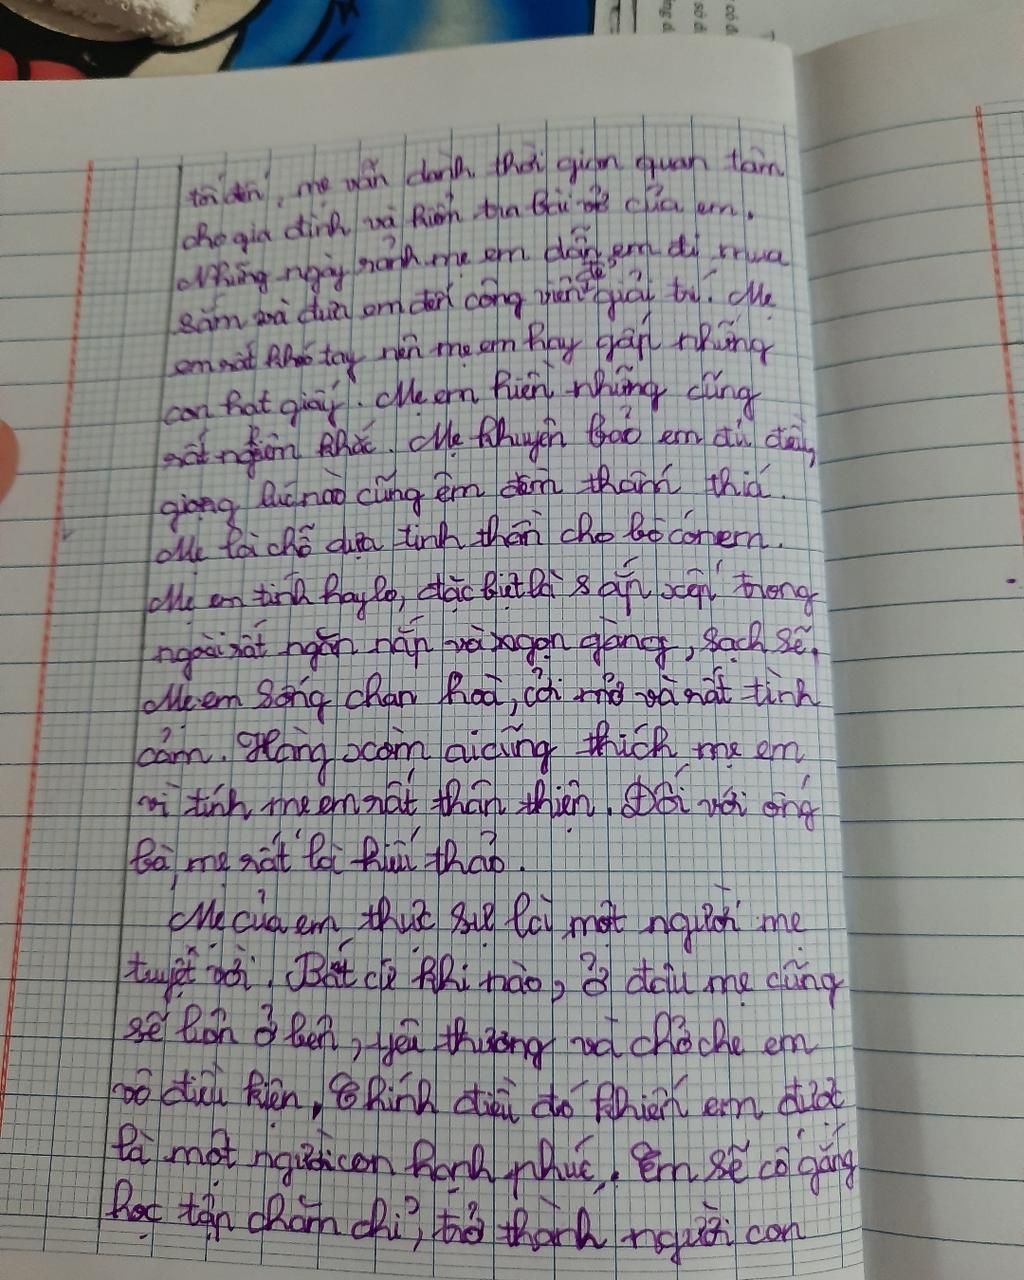 tối đến, mẹ vẫn dành thời gian quan tâm
cho gia đình và kiểm tra bài vở của em.
Những ngày rảnh mẹ em dẫn em đi mua
sắm và đưa em đến công viên để giải trí. Mẹ
em rất khéo tay nên mẹ em hay gấp những
con hạt giấy. Mẹ em hiền nhưng cũng
rất nghiêm khắc. Mẹ khuyên bảo em đủ điều,
giọng lúc nào cũng êm đềm thánh thiá.
Mẹ là chỗ dựa tinh thần cho bố con em.
Mẹ em tính hay lo, đặc biệt là sắp xếp trong
ngoài rất ngăn nắp và ngọn gàng, sạch sẽ.
Mẹ em sống chan hoà, cởi mở và rất tình
cảm. Hàng xóm ai cũng thích mẹ em
vì tính mẹ em rất thân thiện. Đối với ông
bà, mẹ rất là hiếu thảo.
Mẹ của em thực sự là một người mẹ
tuyệt vời. Bất cứ khi nào, ở đâu mẹ cũng
sẽ luôn ở bên, yêu thương và chở che em
vô điều kiện. Chính điều đó khiến em được
là một người con hạnh phúc. Em sẽ cố gắng
học tập chăm chỉ, trở thành người con